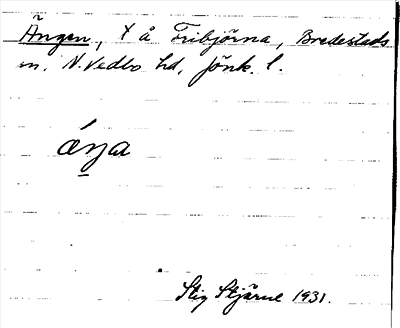 Ängen, t å Fribjörna, Bredestads
sn, N. Vedbo hd, Jönk. l.
áŋa
Stig Stjärne 1931.